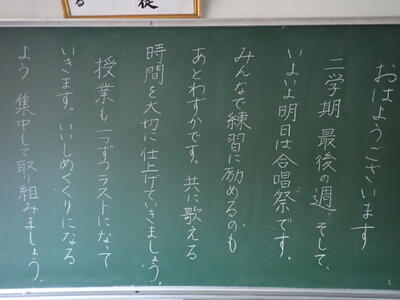 おはようございます
二学期 最後の週 そして、
いよいよ明日は合唱祭です。
みんなで練習に励めるのも
あとわずかです。共に歌える
時間を大切に仕上げていきましょう。
授業も一つずつラストになって
いきます。いいしめくくりになる
よう 集中して取り組みましょう。